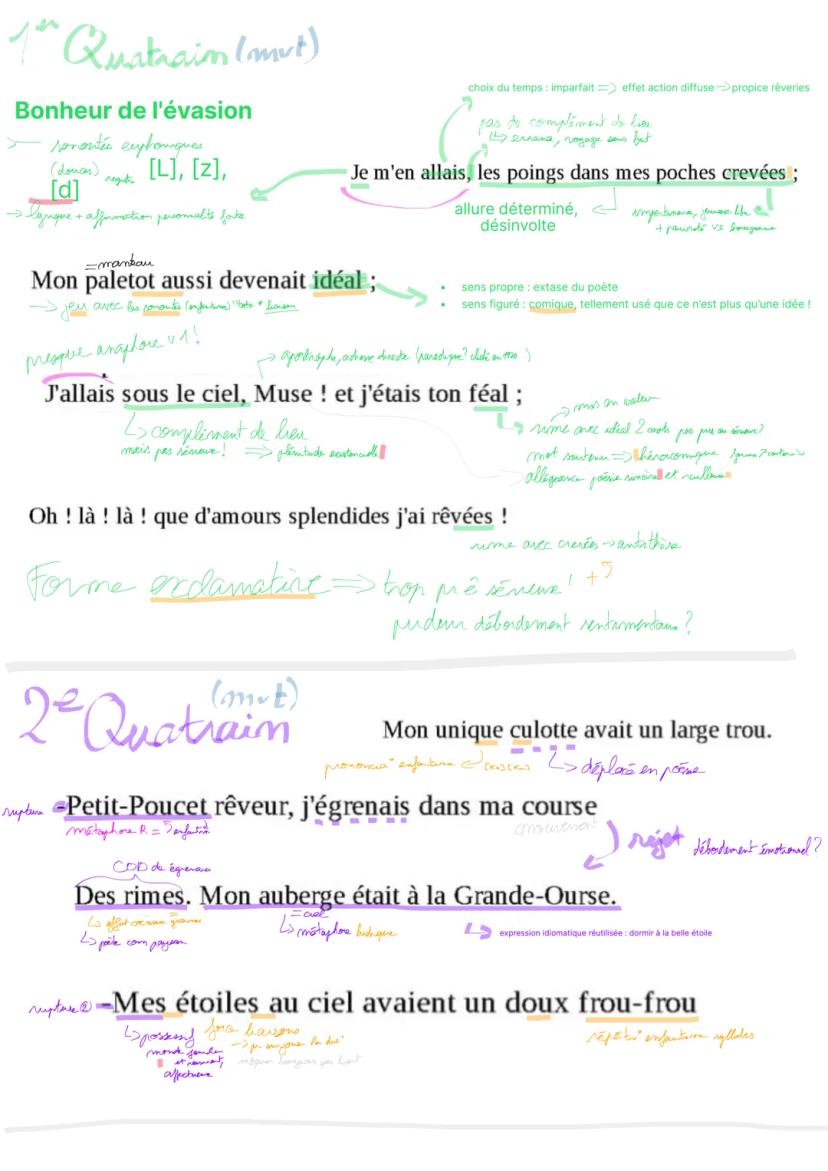 1er Quatrain (mvt)
choix du temps : imparfait => effet action diffuse -> propice rêveries
Bonheur de l'évasion
pas de complément de lieu
↳ errance, voyage sans but
> sonorités euphoniques
(douces) [L], [z],
[d]
Je m'en allais, les poings dans mes poches crevées ;
-> lyrique + affirmation personnalité forte
allure déterminé,
désinvolte
+ pauvreté VS
= manteau
Mon paletot aussi devenait idéal ;
• sens propre : extase du poète
• sens figuré : comique, tellement usé que ce n'est plus qu'une idée !
-> jeu avec les sonorités (enfantines) "toto" + liaison
presque anaphore v1 !
-> apostrophe, adresse directe
J'allais sous le ciel, Muse ! et j'étais ton féal ;
-> mis en valeur
↳ complément de lieu
mais pas sérieux ! => plénitude existentielle
↳ rime avec idéal 2 mots pas pris au sérieux ?
mot soutenu => héroïcomique
allégeance poésie
Oh ! là ! là ! que d'amours splendides j'ai rêvées !
rime avec crevées -> antithèse
Forme exclamative => trop pr ê sérieux !
pudeur débordement sentimentaux ?
2e Quatrain (mvt)
Mon unique culotte avait un large trou.
prononcia° enfantine
↳ déplacé en poésie
rupture -Petit-Poucet rêveur, j'égrenais dans ma course
métaphore
(mouvement
rejet débordement émotionnel ?
COD de égrenais
Des rimes. Mon auberge était à la Grande-Ourse.
↳ poète comme paysan
= ciel
↳ métaphore ludique
↳ expression idiomatique réutilisée : dormir à la belle étoile
rupture ② -Mes étoiles au ciel avaient un doux frou-frou
↳ possessif
force liaisons
répéti° enfantine syllabes
monde
affectueux